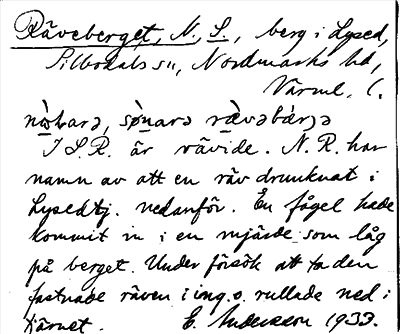 Räveberget, N., S., berg i Lysed,
Silbodals sn, Nordmarks hd,
Värml. l.
nò̱ɫarə, sø̀narə rævəbærjə
I S.R. är rävide. N.R. har
namn av att en räv drunknat i
Lysedtj. nedanför. En fågel hade
kommit in i en mjärde som låg
på berget. Under försök att ta den
fastnade räven i ing. o. rullade ned i
tjärnet. E. Andersson 1933.